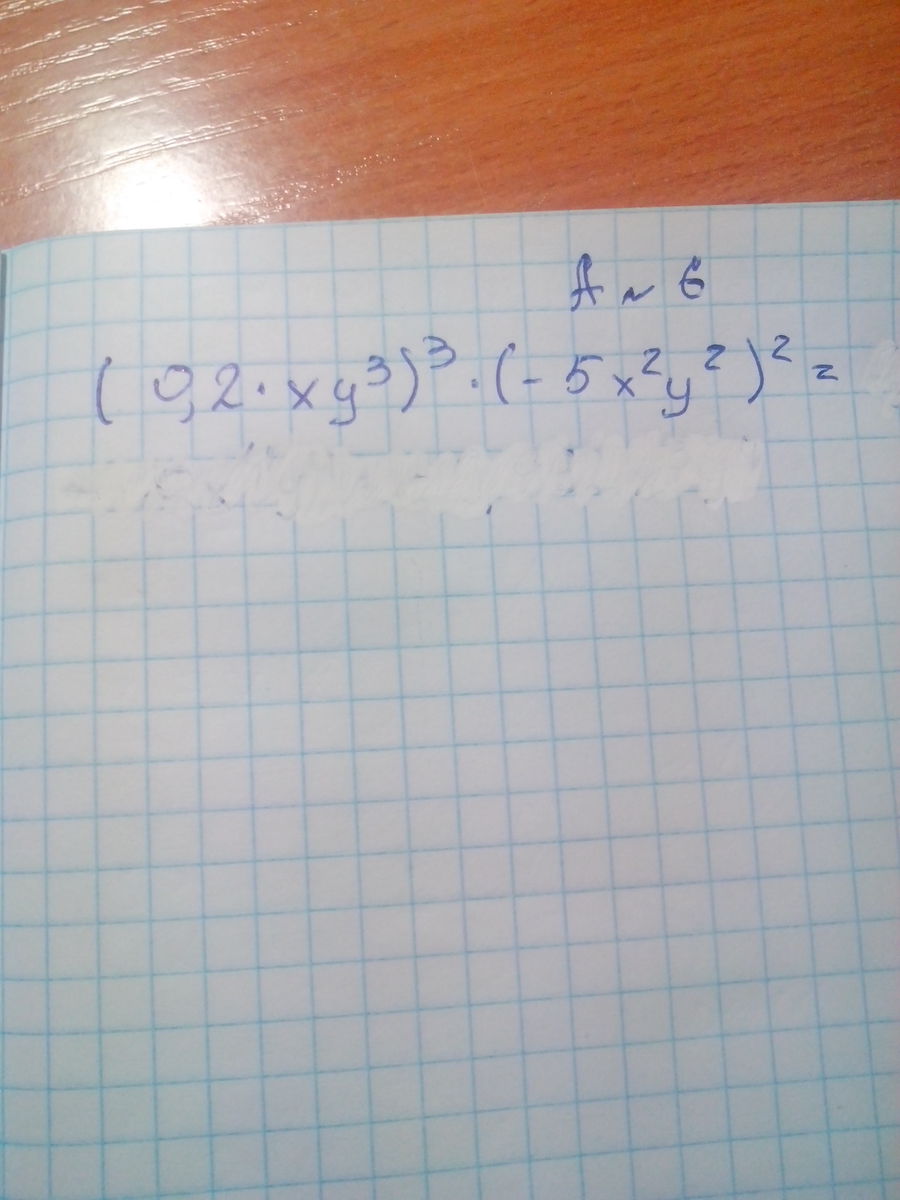 A ~ 6
( 0,2 · xy³)³ · (- 5x²y²)² =